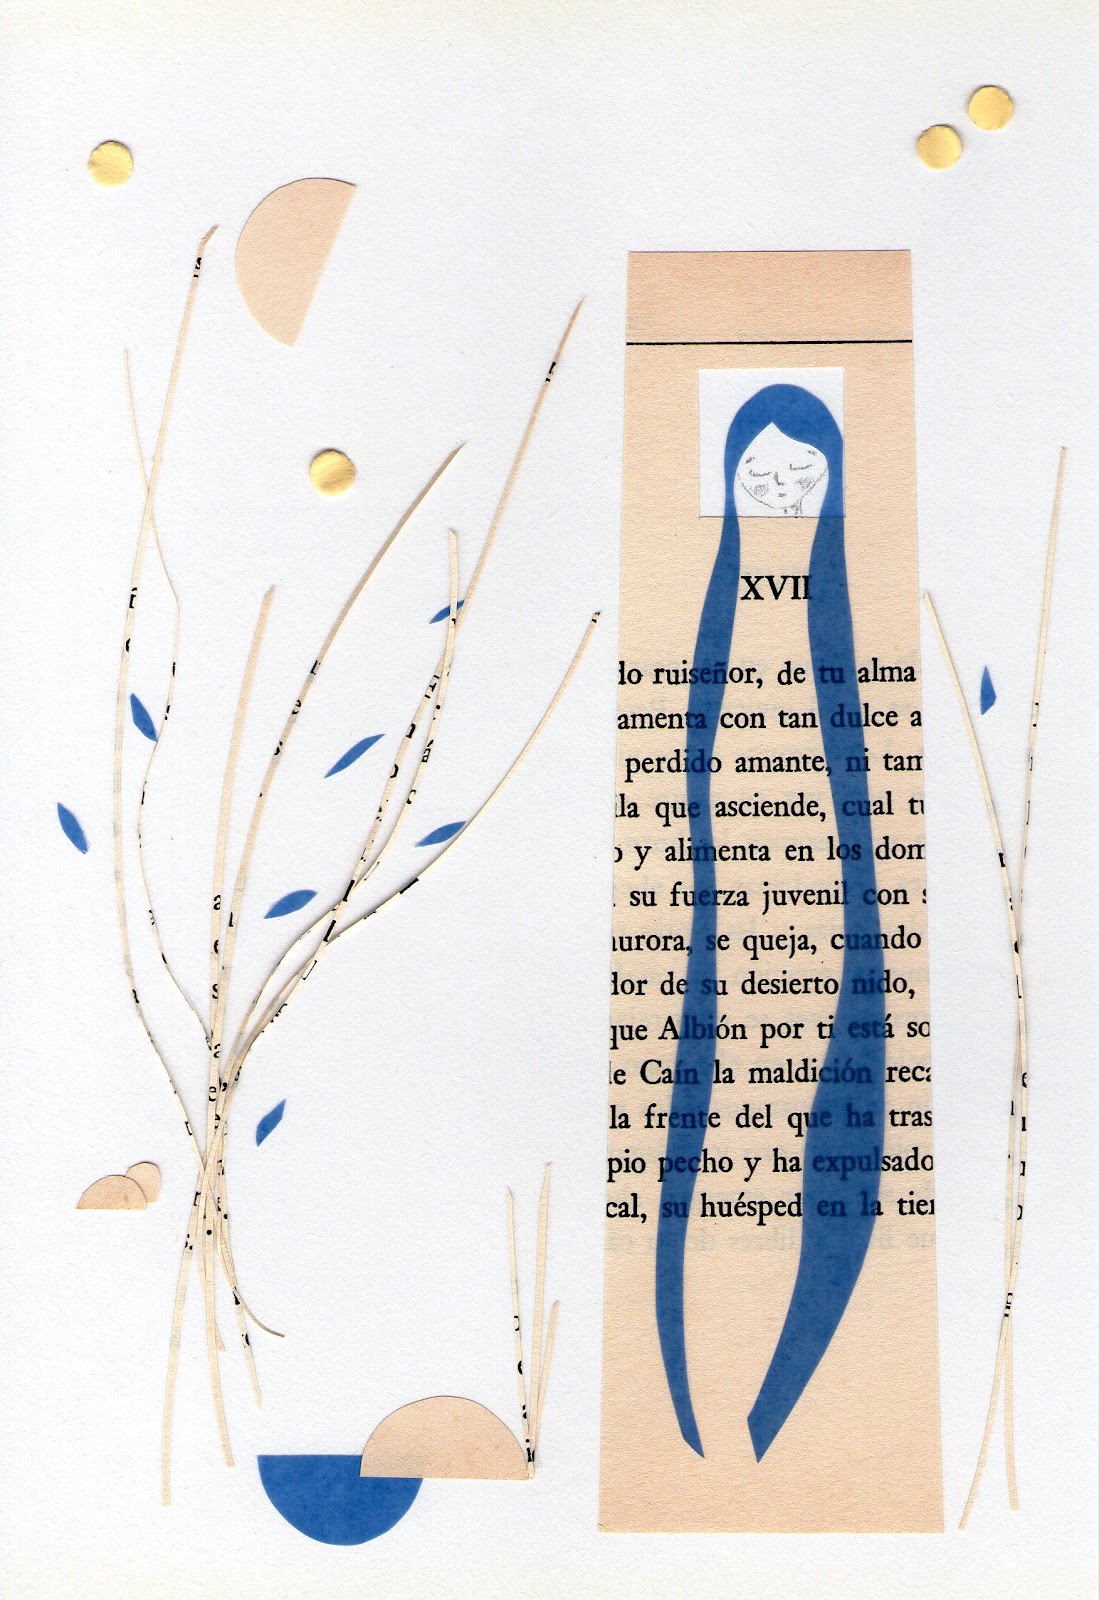 XVII
do ruiseñor, de tu alma
amenta con tan dulce a
perdido amante, ni tam
la que asciende, cual tu
o y alimenta en los dom
su fuerza juvenil con s
aurora, se queja, cuando
dor de su desierto nido,
que Albión por ti está so
de Caín la maldición reca
la frente del que ha tras
pio pecho y ha expulsado
cal, su huésped en la tier